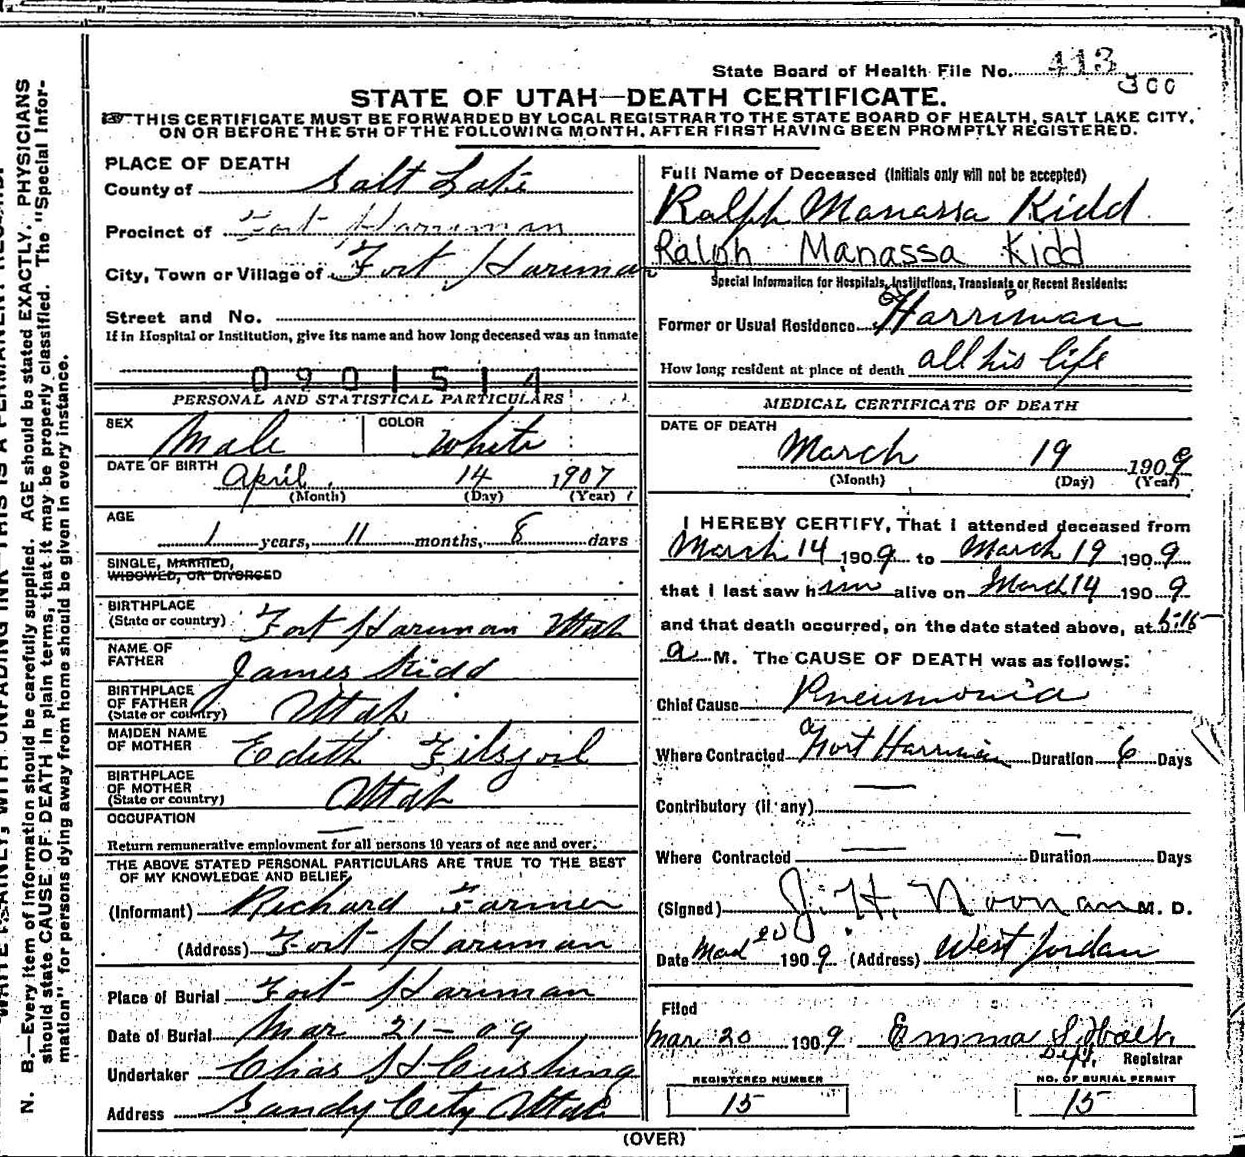 State Board of Health File No. 413
300
STATE OF UTAH—DEATH CERTIFICATE.
THIS CERTIFICATE MUST BE FORWARDED BY LOCAL REGISTRAR TO THE STATE BOARD OF HEALTH, SALT LAKE CITY,
ON OR BEFORE THE 5TH OF THE FOLLOWING MONTH, AFTER FIRST HAVING BEEN PROMPTLY REGISTERED.
PLACE OF DEATH
County of Salt Lake
Precinct of Fort Harriman
City, Town or Village of Fort Hariman
Street and No.
If in Hospital or Institution, give its name and how long deceased was an inmate
0901514
PERSONAL AND STATISTICAL PARTICULARS
SEX Male COLOR White
DATE OF BIRTH April 14 1907
(Month) (Day) (Year)
AGE
1 years, 11 months, 8 days
SINGLE, MARRIED,
WIDOWED, OR DIVORCED
BIRTHPLACE
(State or country) Fort Hariman Utah
NAME OF
FATHER James Kidd
BIRTHPLACE
OF FATHER
(State or country) Utah
MAIDEN NAME
OF MOTHER Edith
BIRTHPLACE
OF MOTHER
(State or country) Utah
OCCUPATION —
Return remunerative employment for all persons 10 years of age and over.
THE ABOVE STATED PERSONAL PARTICULARS ARE TRUE TO THE BEST
OF MY KNOWLEDGE AND BELIEF
(Informant) Richard Farmer
(Address) Fort Hariman
Place of Burial Fort Hariman
Date of Burial Mar 21-09
Undertaker Chas H Cushing
Address Sandy City Utah
Full Name of Deceased (Initials only will not be accepted)
Ralph Manassa Kidd
Ralph Manassa Kidd
Special Information for Hospitals, Institutions, Transients or Recent Residents:
Former or Usual Residence Harriman
How long resident at place of death all his life
MEDICAL CERTIFICATE OF DEATH
DATE OF DEATH
March 19 1909
(Month) (Day) (Year)
I HEREBY CERTIFY, That I attended deceased from
March 14 1909 to March 19 1909
that I last saw him alive on March 14 1909
and that death occurred, on the date stated above, at 5:15
a M. The CAUSE OF DEATH was as follows:
Chief Cause Pneumonia
Where Contracted Fort Harriman Duration 6 Days
Contributory (if any) —
Where Contracted — Duration — Days
(Signed) J. H. Noonan M. D.
Date 20 1909 (Address) West Jordan
Filed
Mar 20 1909 Emma S.
Dept. Registrar
REGISTERED NUMBER
15
NO. OF BURIAL PERMIT
15
(OVER)
N. B.—Every item of information should be carefully supplied. AGE should be stated EXACTLY. PHYSICIANS
should state CAUSE OF DEATH in plain terms, that it may be properly classified. The "Special Infor-
mation" for persons dying away from home should be given in every instance.